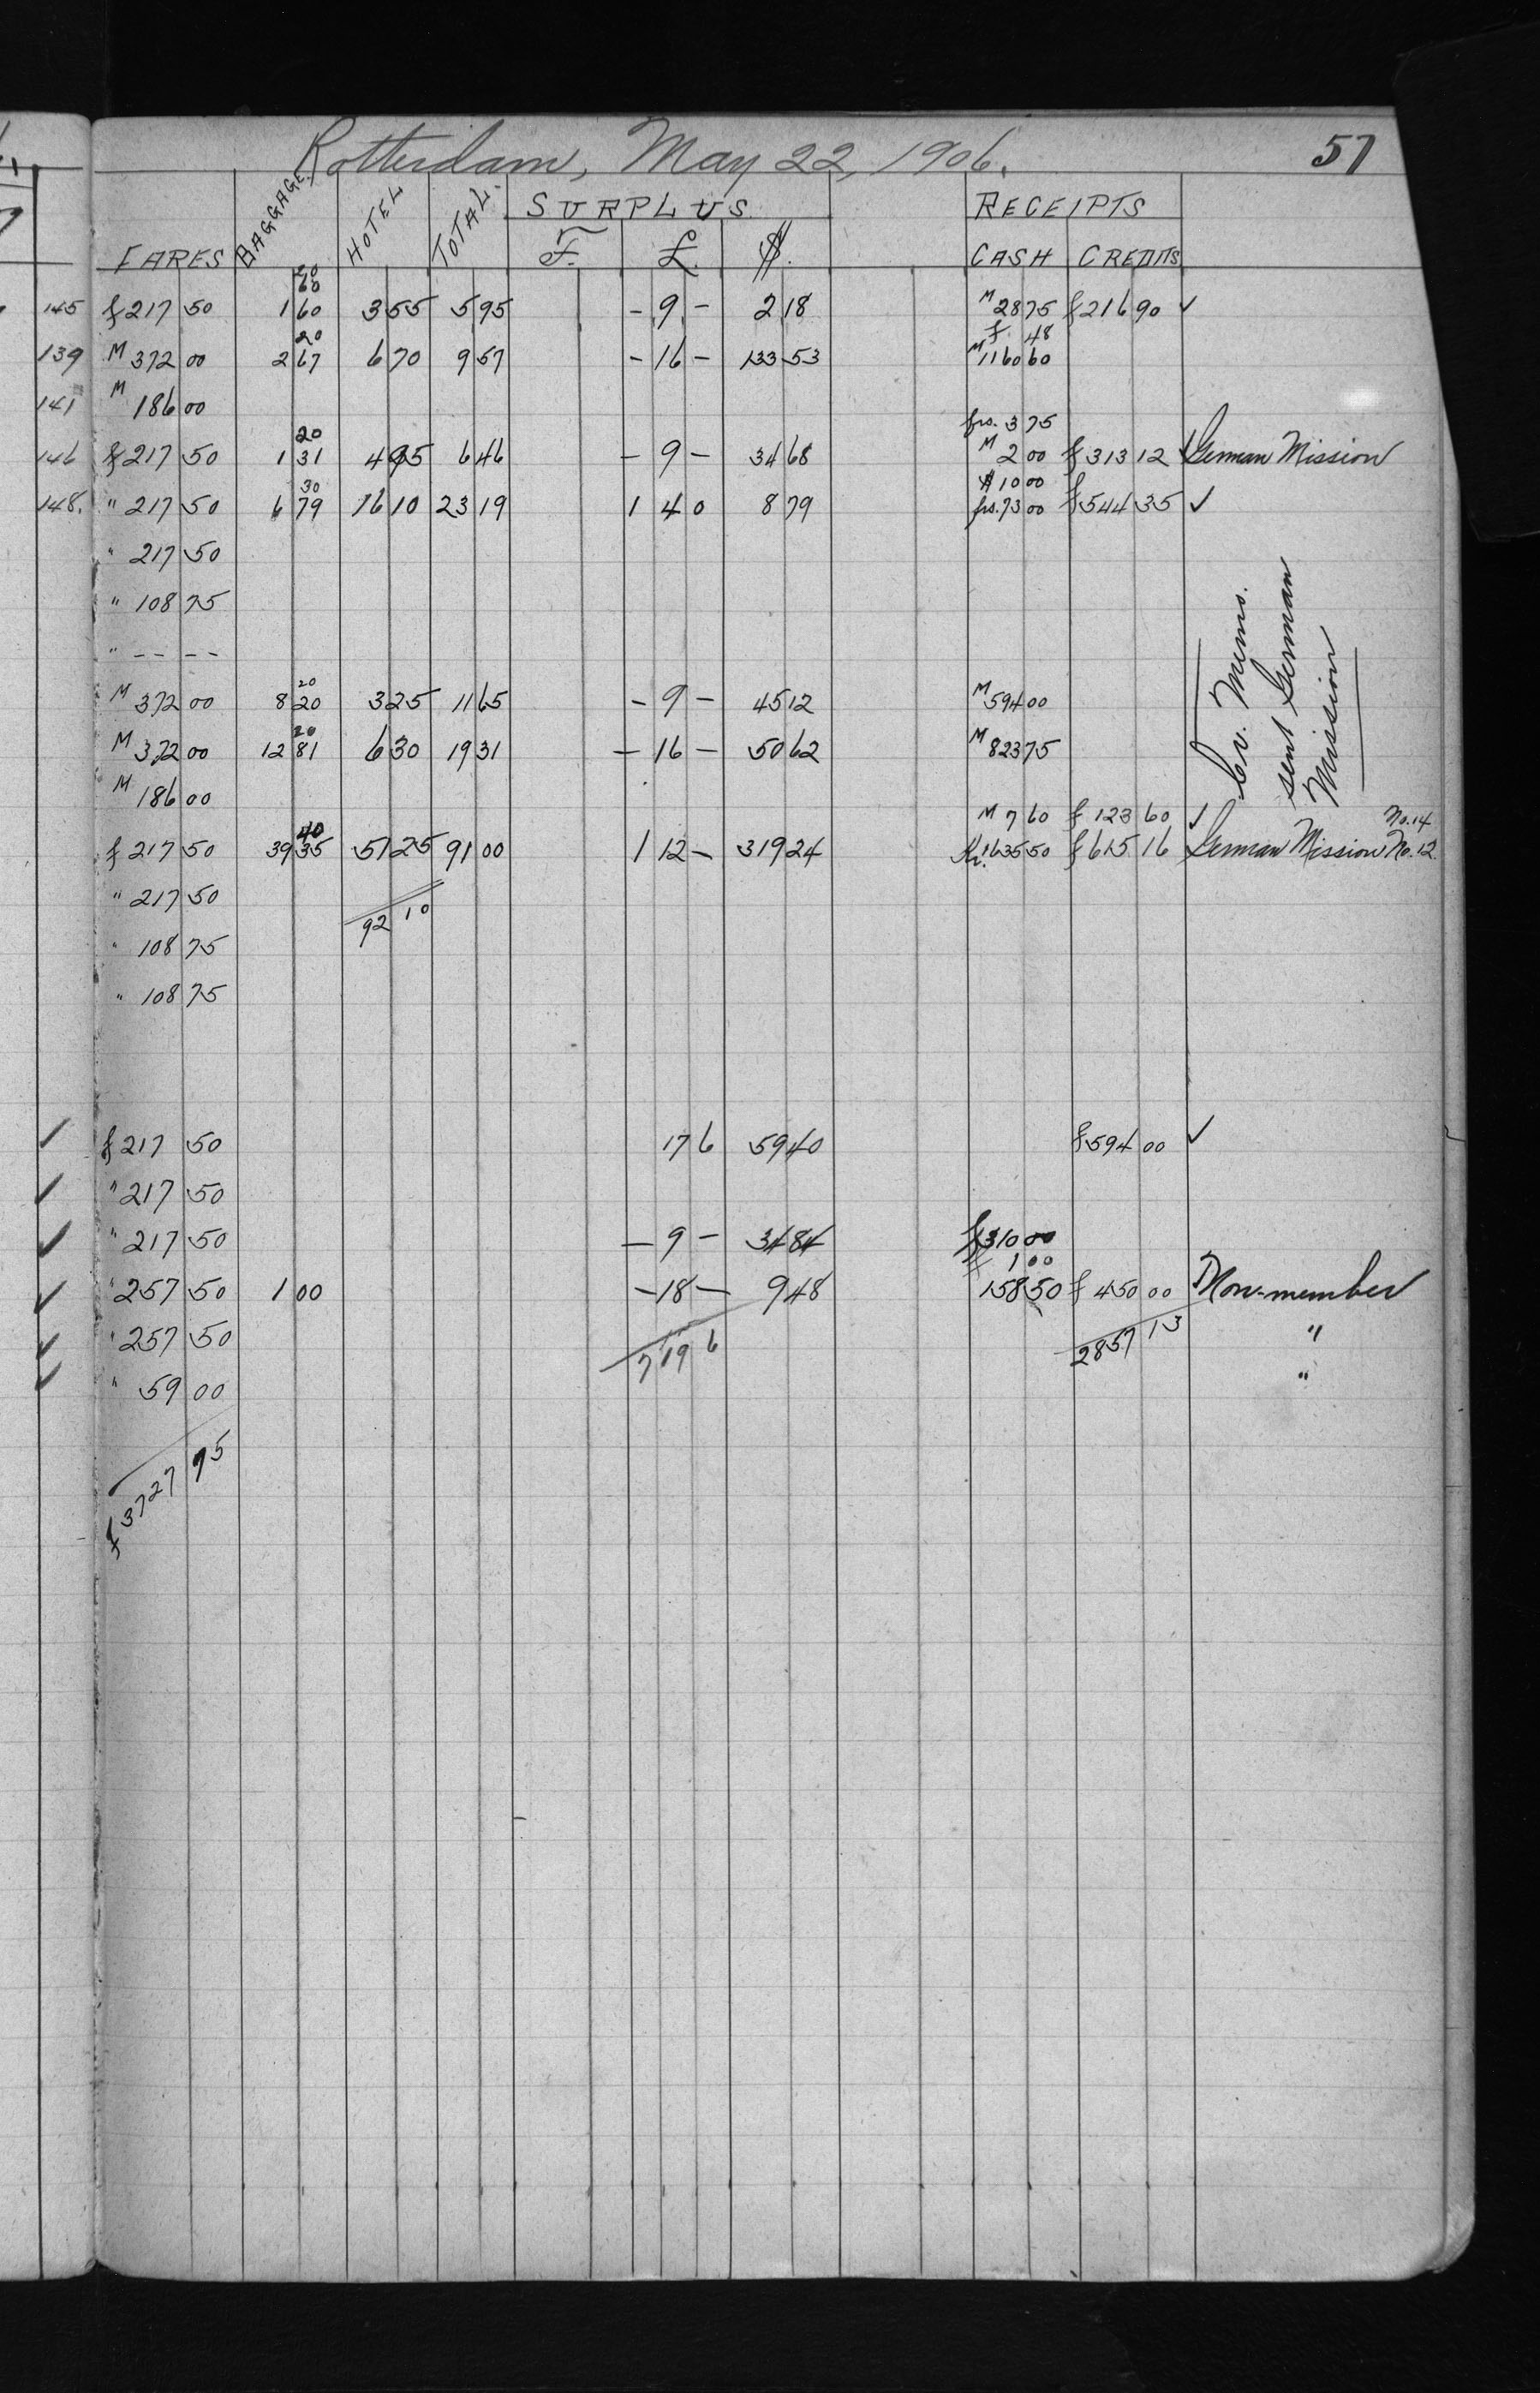 Rotterdam, May 22, 1906. 57
FARES BAGGAGE. HOTEL TOTAL. SURPLUS RECEIPTS
F. £. $. CASH CREDITS
20
60
145 f 217 50 1 60 3 55 5 95 - 9 - 2 18 M 28 75 f 216 90 ✓
20 f. 48
139 M 372 00 2 67 6 70 9 57 - 16 - 133 53 M 1160 60
141 M 186 00
20 frs. 3 75
146 f 217 50 1 31 4 95 6 46 - 9 - 34 68 M 2 00 f 313 12 ✓ German Mission
30 $ 10 00
148. " 217 50 6 79 16 10 23 19 1 4 0 8 79 frs. 73 00 f 544 35 ✓
" 217 50
" 108 75
" -- --
20
M 372 00 8 20 3 25 11 65 - 9 - 45 12 M 594 00
20
M 372 00 12 81 6 30 19 31 - 16 - 50 62 M 823 75
M 186 00
Cr. Memo.
sent German
Mission
40 M 7 60 f 123 60 ✓ No. 14
f 217 50 39 35 51 25 91 00 1 12 - 319 24 Kr. 1635 50 f 615 16 German Mission No. 12.
" 217 50
92 10
" 108 75
" 108 75
✓ f 217 50 17 6 59 40 f 594 00 ✓
✓ " 217 50
✓ " 217 50 - 9 - 34 84 f 310 00
1 00
✓ " 257 50 1 00 - 18 - 9 48 158 50 f 450 00 Non-member
✓ " 257 50 7 19 6 2857 13 "
✓ " 59 00 "
f 3727 75